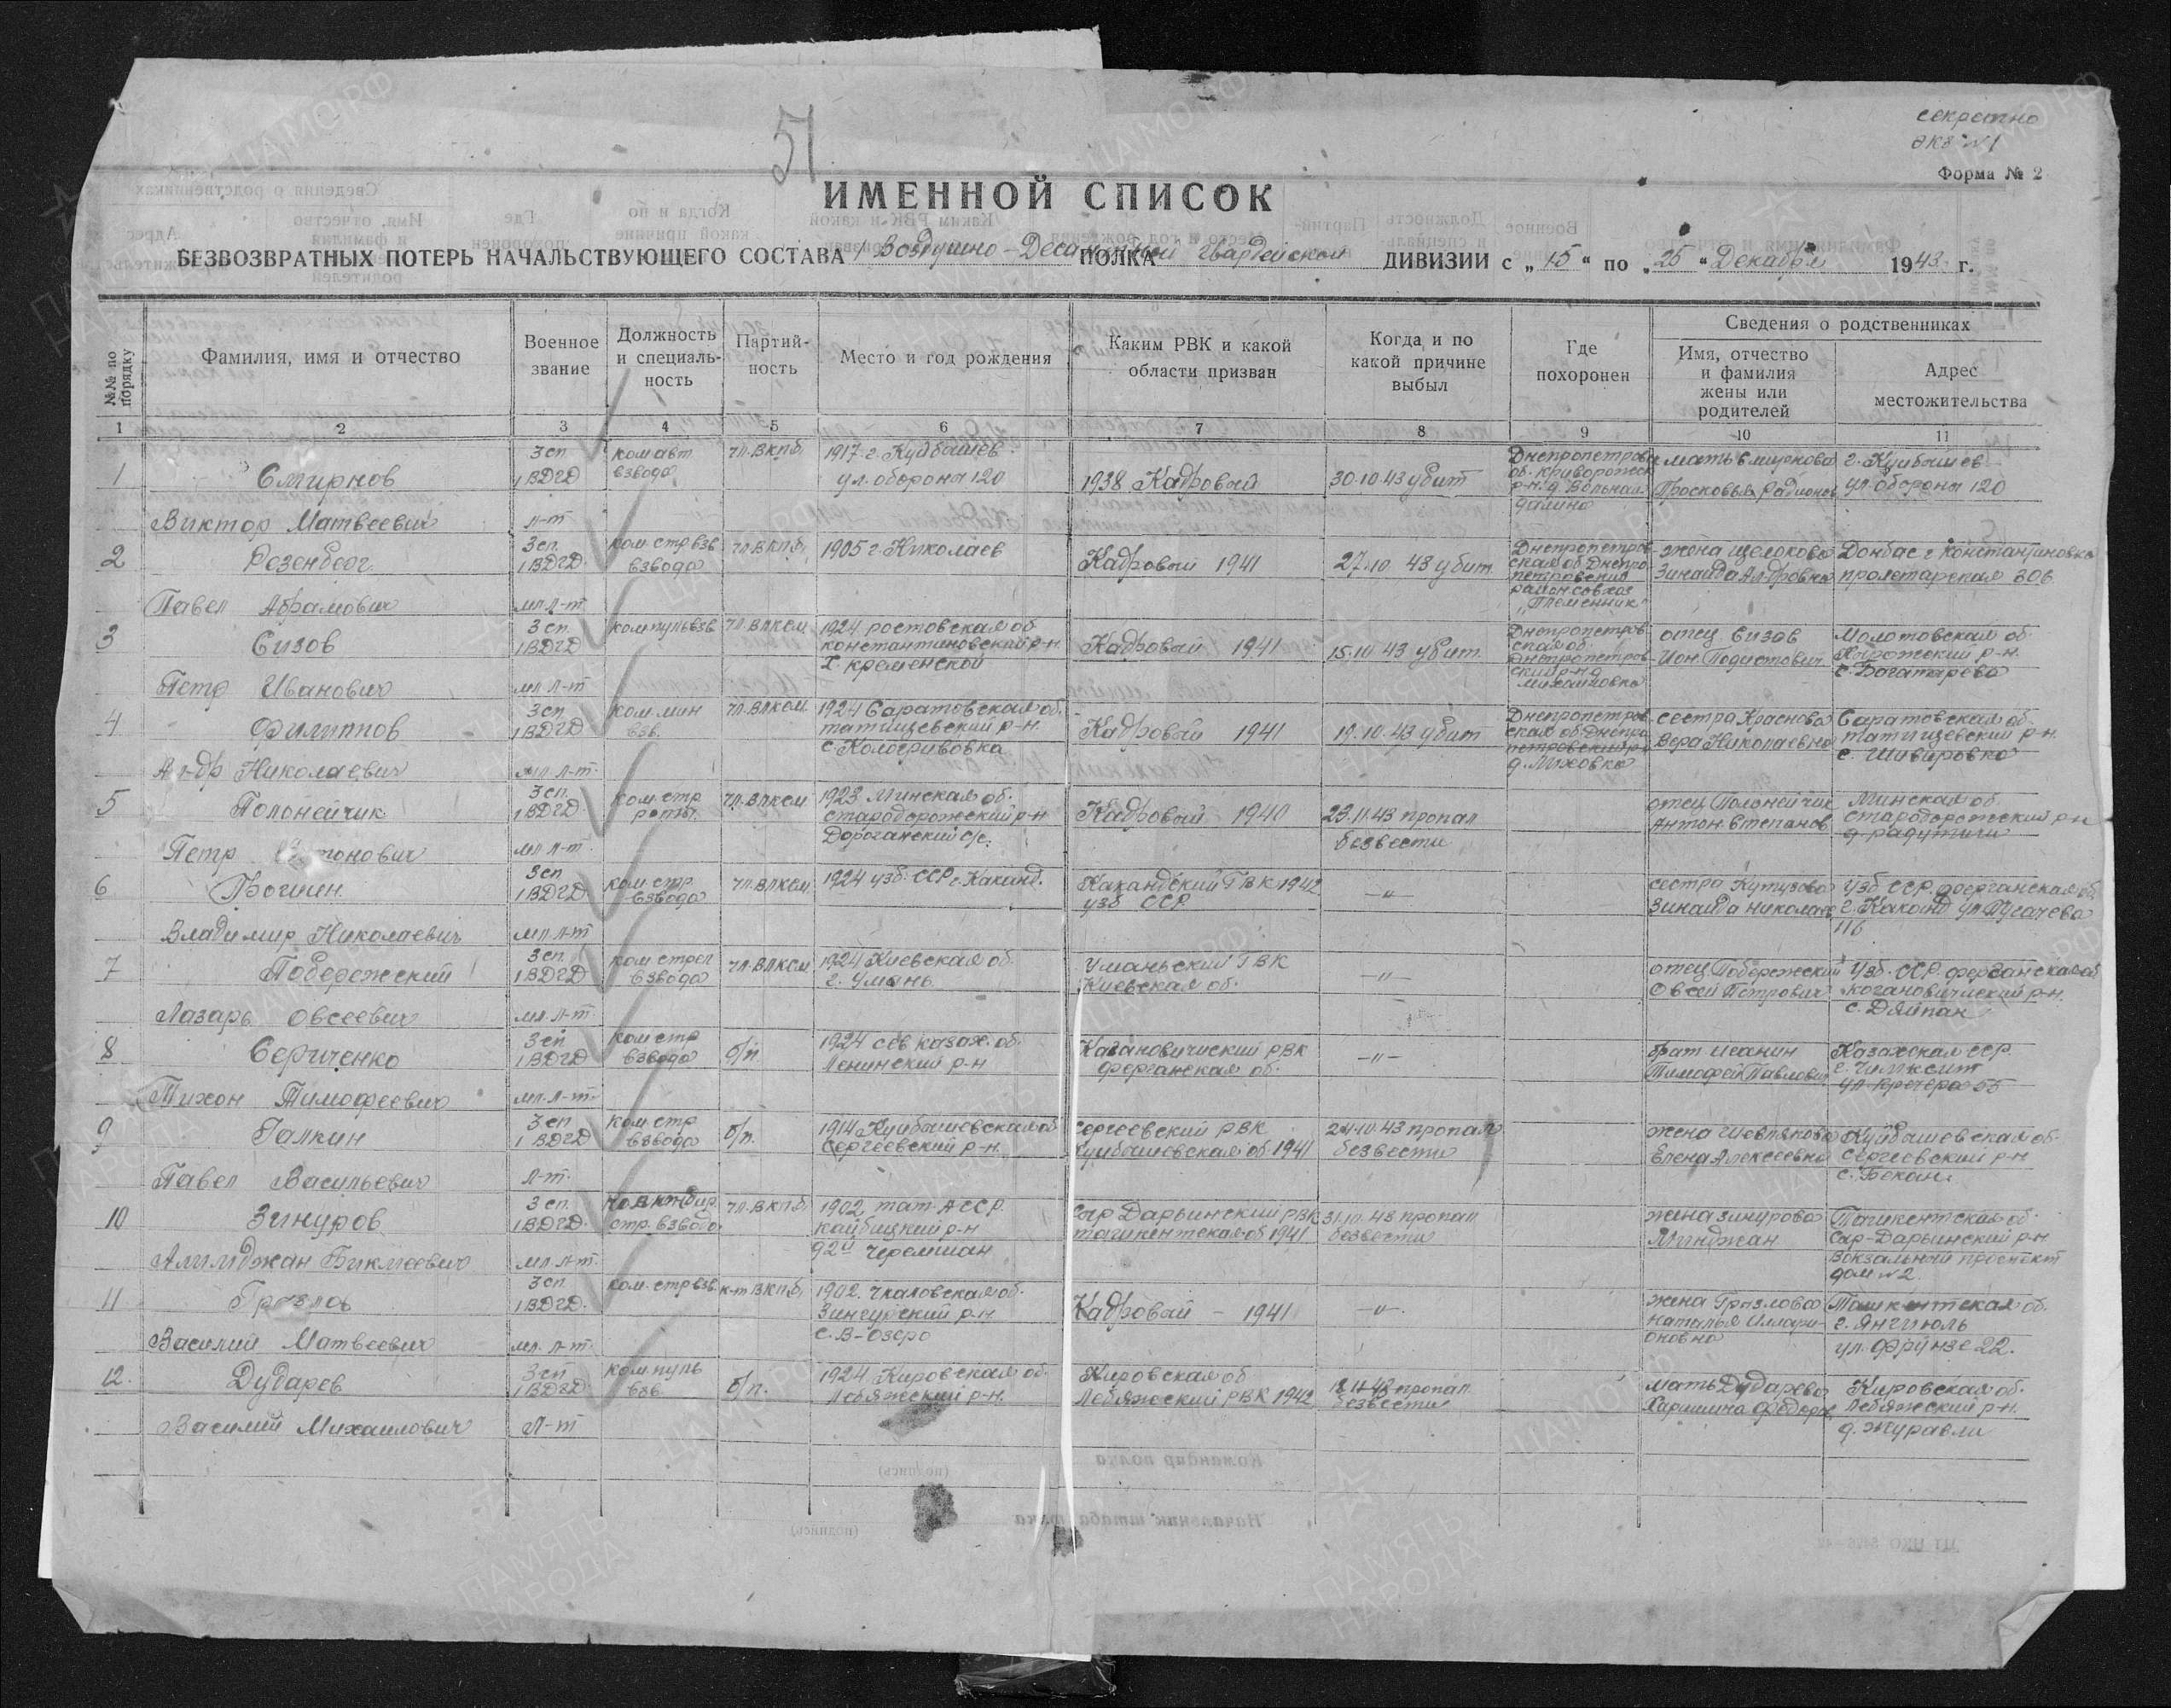 51
секретно
экз №1
Форма № 2
ИМЕННОЙ СПИСОК
БЕЗВОЗВРАТНЫХ ПОТЕРЬ НАЧАЛЬСТВУЮЩЕГО СОСТАВА 1 Воздушно-Десантной ПОЛКА Гвардейской ДИВИЗИИ с „15“ по „25“ Декабря 1943 г.
№№ по порядку
Фамилия, имя и отчество
Военное звание
Должность и специальность
Партийность
Место и год рождения
Каким РВК и какой области призван
Когда и по какой причине выбыл
Где похоронен
Сведения о родственниках
Имя, отчество и фамилия жены или родителей
Адрес местожительства
1 2 3 4 5 6 7 8 9 10 11
1 Смирнов Виктор Матвеевич
3 сп 1 ВДГД л-т
ком авт взвода
чл.ВКПб
1917 г. Куйбышев ул. обороны 120
1938 Кадровый
30.10.43 убит
Днепропетровс об. Криворожск р-н. д Вольная долина
мать Смирнова Просковья Радионов
г. Куйбышев ул. обороны 120
2 Розенберг Павел Абрамович
3 сп. 1 ВДГД мл л-т
ком стр взв взвода
чл.ВКПб
1905 г. Николаев
Кадровый 1941
27.10.43 убит
Днепропетровская об Днепропетровский район совхоз „Племенник“
жена Щелокова Зинаида Ал-дровна
Донбас г. Константиновка пролетарская 306
3 Сизов Петр Иванович
3 сп 1 ВДГД мл л-т
ком пульвзв
чл.ВЛКСМ
1924 ростовская об константиновский р-н. Х кременской
Кадровый 1941
15.10.43 убит
Днепропетровская об. Днепропетровский р-н д Михайловка
отец Сизов
Молотовская об. р-н. с. Богатырево
4 Филиппов Ал-др Николаевич
3 сп 1 ВДГД мл л-т.
ком мин взв.
чл.ВЛКСМ
1924 Саратовская об. татищевский р-н. с Кологривовка
Кадровый 1941
19.10.43 убит
Днепропетровская об Днепропетровский р-н д.
сестра Краснова Вера Николаевна
Саратовская об. татищевский р-н.
5 Полонейчик Петр Антонович
3 сп. 1 ВДГД. мл л-т.
ком. стр роты.
чл.ВЛКСМ
1923 Минская об. стародорожский р-н Дороганский с/с.
Кадровый 1940
23.11.43 пропал безвести
отец Полонейчик Антон Степанов
Минская об. стародорожский р-н
6 Грошин Владимир Николаевич
3 сп 1 ВДГД мл. л-т
ком. стр. взвода
чл.ВЛКСМ
1924 узб. ССР г. Каканд.
Какандский ГВК 1942 узб ССР
—"—
сестра Кутузова Зинаида николаев
Узб ССР. ферганская об. г. Каканд ул Пугачева 116
7 Побережский Лазарь Овсеевич
3 сп. 1 ВДГД мл. л-т.
ком стрел взвода
чл.ВЛКСМ
1924 Киевская об. г. Умань
Уманьский ГВК Киевская об.
—"—
отец Побережский Овсей Петрович
Узб. ССР. ферганская об кагановичиский р-н.
8 Сериченко Тихон Тимофеевич
3 сп 1 ВДГД мл. л-т.
ком стр взвода
б/п.
1924 сев казах. об. Ленинский р-н
Кагановичиский РВК ферганская об.
—"—
брат
Казахская ССР. г. Чимкент
9 Галкин Павел Васильевич
3 сп 1 ВДГД л-т.
ком. стр взвода
б/п.
1914 Куйбышевская об Сергеевский р-н.
Сергеевский РВК Куйбышевская об. 1941
24.10.43 пропал безвести
жена Шевлякова Елена Алексеевна
Куйбышевская об. Сергеевский р-н
10 Зинуров Алимджан Бикмеевич
3 сп. 1 ВДГД. мл л-т.
стр. взвода
чл.ВКПб
1902 тат. АССР. кайбицкий р-н
Сыр Дарьинский РВК ташкентская об 1941
31.10.43 пропал безвести
жена зинурова Минджан
Ташкентская об. Сыр-Дарьинский р-н. Вокзальный проспект дом №2
11 Грязлов Василий Матвеевич
3 сп. 1 ВДГД. мл. л-т.
ком. стр взв
к-т ВКПб
1902. Чкаловская об. р-н с. В-озеро
Кадровый – 1941
—"—
жена Грязлова наталья Иллари оновна
Ташкентская об. г. Янгиюль ул. Фрунзе 22.
12. Дударев Василий Михаилович
3 сп 1 ВДГД. л-т
ком. пуль взв
б/п.
1924 Кировская об. Лебяжский р-н.
Кировская об Лебяжский РВК 1942
пропал безвести
мать Дударева
Кировская об. Лебяжский р-н. д. Журавли